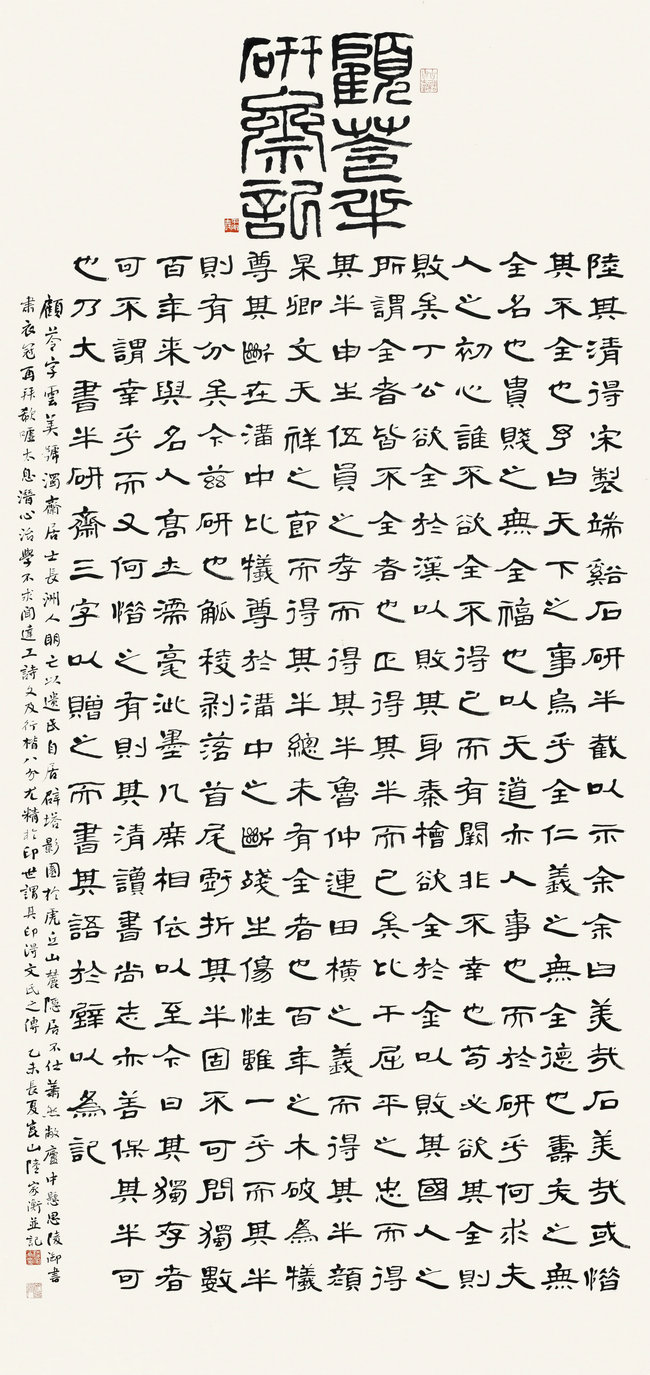 顧苓半
研齋記
陸其清得宋製端谿石研半截以示余余曰美哉石美哉或惜
其不全也予曰天下之事烏乎全仁義之無全德也壽夭之無
全名也貴賤之無全福也以天道亦人事也而於研乎何求夫
人之初心誰不欲全不得已而有闕非不幸也苟必欲其全則
敗矣丁公欲全於漢以敗其身秦檜欲全於金以敗其國人之
所謂全者皆不全者也正得其半而已矣比干屈平之忠而得
其半申生伍員之孝而得其半魯仲連田橫之義而得其半顔
杲卿文天祥之節而得其半總未有全者也百年之木破為犧
尊其斷在溝中比犧尊於溝中之斷殘生傷性雖一乎而其半
則有分矣今茲研也觚稜剥落首尾虧折其半固不可問獨數
百年來與名人高士濡毫泚墨几席相依以至今日其獨存者
可不謂幸乎而又何惜之有則其清讀書尚志亦善保其半可
也乃大書半研齋三字以贈之而書其語於壁以為記
顧苓字雲美號濁齋居士長洲人明亡以遺民自居辟塔影園於虎丘山麓隱居不仕蕭然敝廬中懸思陵御書
肅衣冠再拜欷歔太息潛心治學不求聞達工詩文及行楷八分尤精於印世謂其印得文氏之傳 乙未長夏崑山陸家衡並記